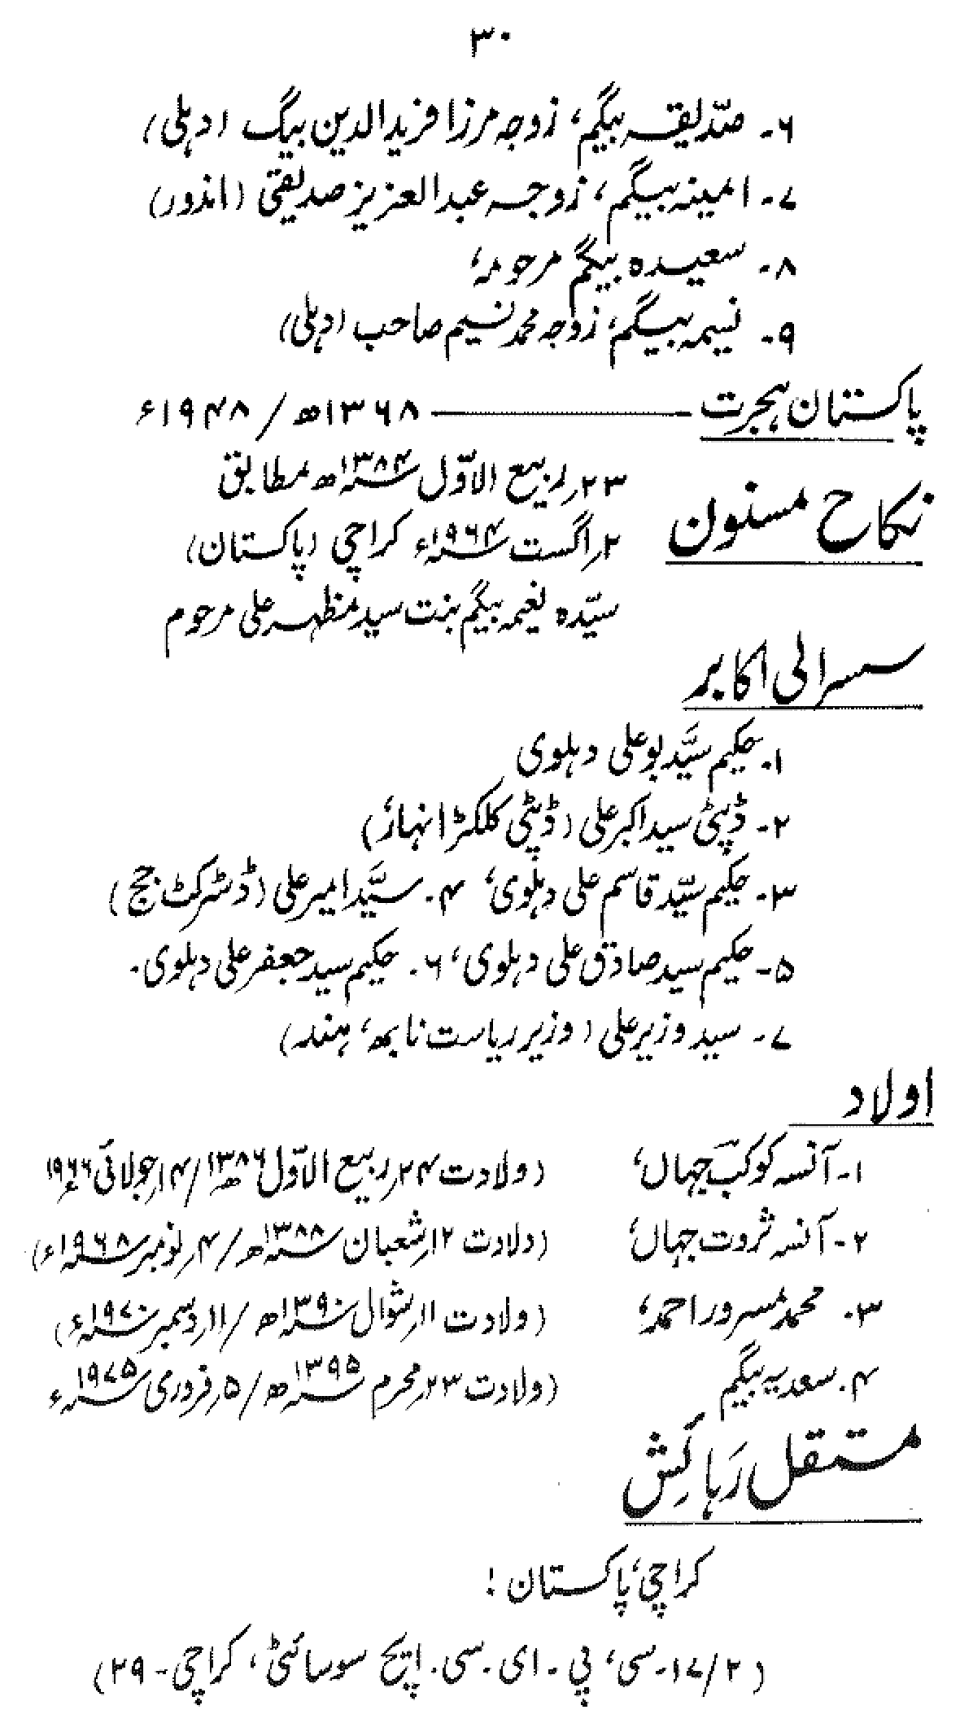 ۳۰
۶- صدّیقہ بیگم، زوجہ مرزا فرید الدین بیگ (دہلی)
۷- امینہ بیگم، زوجہ عبد العزیز صدیقی (اندور)
۸- سعیدہ بیگم مرحومہ،
۹- نسیمہ بیگم، زوجہ محمد نسیم صاحب (دہلی)
پاکستان ہجرت ———— ۱۳۶۸ھ / ۱۹۴۸ء
۲۳؍ ربیع الاوّل ۱۳۸۴ھ مطابق
نکاح مسنون
۲؍ اگست ۱۹۶۴ء کراچی (پاکستان)
سیّدہ نعیمہ بیگم بنت سید مظہر علی مرحوم
سسرالی اکابر
۱۔ حکیم سیَّد بو علی دہلوی
۲- ڈپٹی سید اکبر علی (ڈپٹی کلکٹر انہار)
۳- حکیم سیّد قاسم علی دہلوی، ۴۔ سیَّد امیر علی (ڈسٹرکٹ جج)
۵- حکیم سید صادق علی دہلوی، ۶۔ حکیم سید جعفر علی دہلوی۔
۷- سید وزیر علی (وزیر ریاست نابھہ، ہند)
اولاد
۱- آنسہ کوکب جہاں، (ولادت ۲۴؍ ربیع الاوّل ۱۳۸۶ھ/ ۱۴؍ جولائی ۱۹۶۶ء
۲- آنسہ ثروت جہاں، (ولادت ۱۲؍ شعبان ۱۳۸۸ھ/ ۴؍ نومبر ۱۹۶۸ء)
۳۔ محمد مسرور احمد، (ولادت ۱۱؍ شوال ۱۳۹۰ھ/ ۱۱؍ دسمبر ۱۹۷۰ء)
۴۔ سعدیہ بیگم (ولادت ۲۳؍ محرم ۱۳۹۵ھ/ ۵؍ فروری ۱۹۷۵ء
مستقل رَہائِش
کراچی، پاکستان :
(۱۷/۲-سی، پی۔ ای۔ سی۔ ایچ سوسائٹی، کراچی-۲۹)